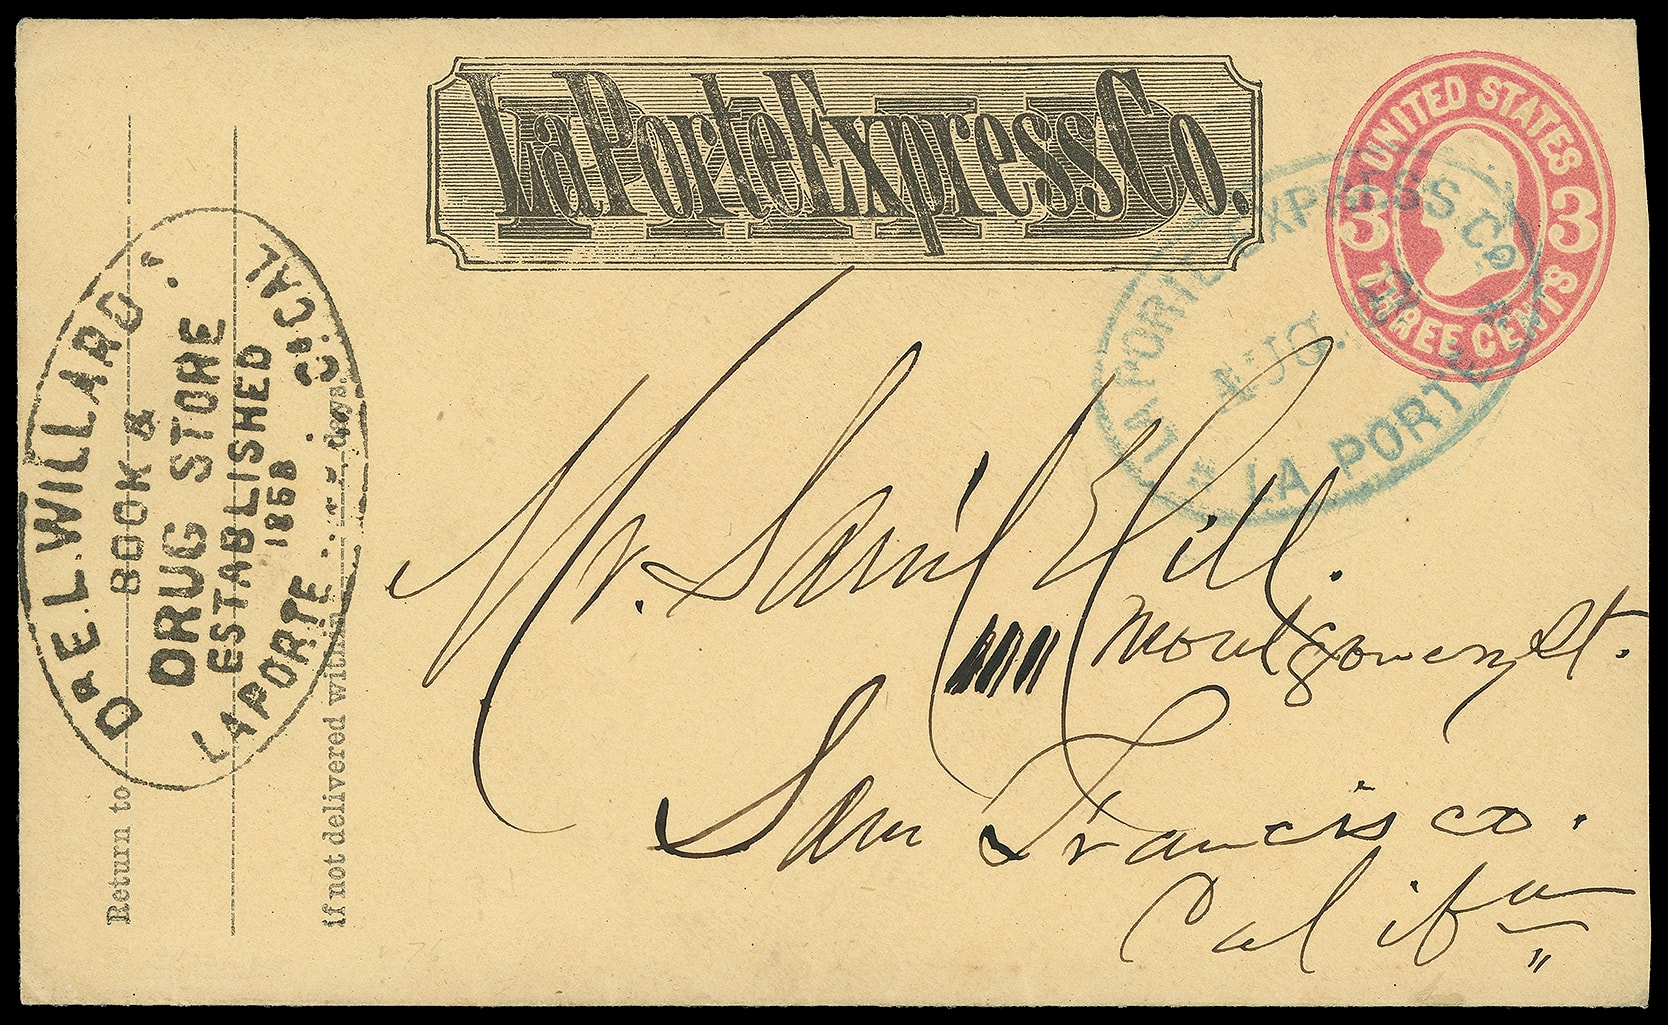 La Porte Express Co.
PAID
UNITED STATES
3 3
THREE CENTS
LA PORTE EXPRESS CO
AUG. 2
* LA PORTE *
DR E L WILLARD
BOOK &
DRUG STORE
ESTABLISHED
1858
LAPORTE CAL
Return to
if not delivered within days.
Mr. Saml Hill.
Montgomery St.
San Francisco.
Califa